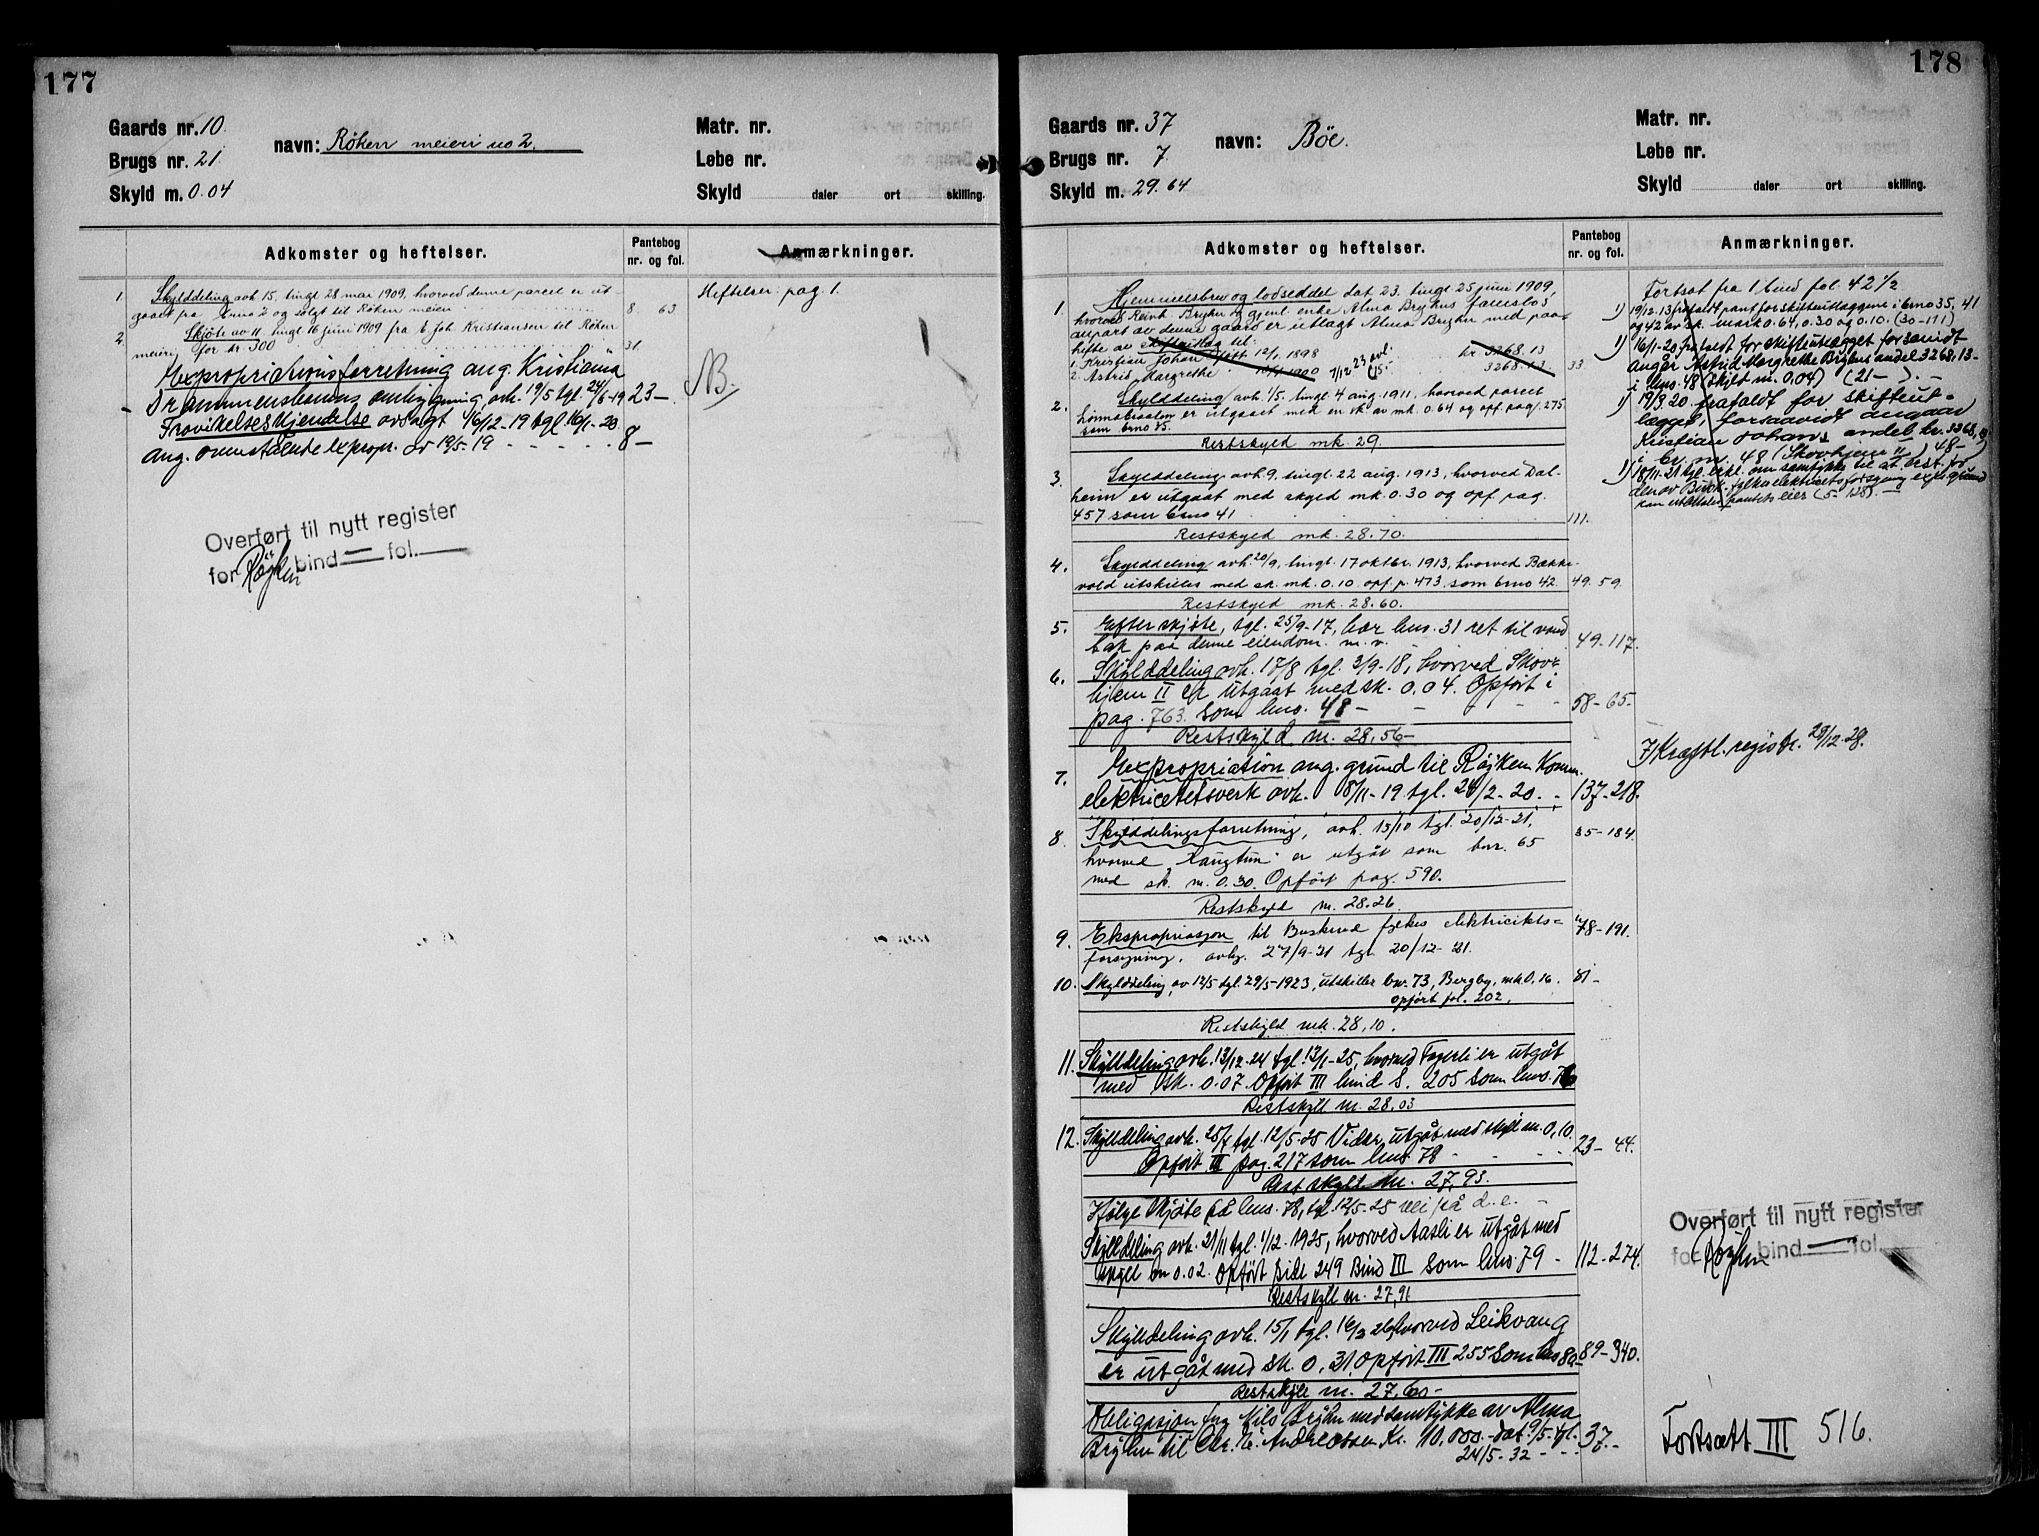 177
Gaards nr. 10.
Brugs nr. 21.
Skyld m. 0.04
navn: Røken meieri no 2.
Matr. nr.
Løbe nr.
Skyld daler ort skilling.
Adkomster og heftelser.
Pantebog nr. og fol.
Anmærkninger.
1. Skylddeling avh. 15, tingl. 28 mai 1909, hvorved denne parcel er ut-
gaaet fra bruno 2 og solgt til Røken meieri 8 63
2. Skjøte av 11, tingl 16 juni 1909 fra E. Joh. Kristiansen til Røken
meieri for kr 300 31.
Expropriationsforretning ang. Kristiania
Drammensbanens ombygning avh. 19/5 tgl. 24/6-19 23-
Fravikelseskjendelse avsagt 16/12-19 tgl 16/1-20
ang. ommeldende expropr. av 19/5-19 8-
Heftelser: pag 1.
NB.
Overført til nytt register
for Røyken bind — fol. —
178
Gaards nr. 37
Brugs nr. 7.
Skyld m. 29.64
navn: Böe.
Matr. nr.
Løbe nr.
Skyld daler ort skilling.
Adkomster og heftelser.
Pantebog nr. og fol.
Anmærkninger.
1. Hjemmelsbrev og lodseddel dat 23. tingl. 25 juni 1909,
hvorved Reinh. Bryhn og gjenl. enke Alma Bryhns fællesbos
anpart av denne gaard er utlagt Alma Bryhn med paa-
hefte av skifteutlæg til:
1. Kristian Johan født 12/1 1898 kr 3268.13
2. Astrid Margrethe 1900 3268.13 33
2. Skylddeling avh. 1/5. tingl. 4 aug. 1911, hvorved parcel
er utgaaet med en sk. av mk. 0.64 og opf. pag. 275
som brno 35.
Restskyld mk. 29.
3. Skylddeling avh. 9, tingl. 22 aug. 1913, hvorved Dal-
heim er utgaat med skyld mk. 0.30 og opf. pag.
457 som brno 41 111.
Restskyld mk. 28.70.
4. Skylddeling avh. 20/9, tingl. 17 oktbr. 1913, hvorved Bække-
vold utskilles med sk. mk. 0.10 opf. p. 473, som brno 42. 49. 59.
Restskyld mk. 28.60.
5. Efter skjöte, tgl. 25/9-17, har bno. 31 ret til vand
tak paa denne eiendom. m. v. 49-117.
6. Skylddeling avh. 17/8 tgl. 3/9-18, hvorved Skov-
hjem II er utgaat med sk. 0.04. Opført i
pag. 763. som bno. 48 - 58-65-
Restskyld m. 28,56-
7. Expropriation ang. grund til Røyken Komm.
elektricitetsverk avh. 8/11-19 tgl. 24/2-20. 137-218.
8. Skylddelingsforretning, avh. 13/10 tgl. 20/12-21,
hvorved Haugtun er utgåt som bnr. 65
med sk. m. 0.30. Opført pag. 590. 35-184.
Restskyld m. 28.26.
9. Ekspropriasjon til Buskerud fylkes elektricitets=
forsyning, avhg. 27/9-21 tgl 20/12-21. 78-191.
10. Skylddeling av 12/5 tgl. 29/5-1923, utskiller bnr. 73, Bergby, mk. 0.16.
opført fol. 202. 81-
Restskyld mk. 28,10.
11. Skylddeling avh. 13/12-24 tgl. 13/1-25, hvorved Fagerli er utgåt
med sk. 0.07. Opført III bind S. 205 som bno. 76
Restskyld m. 28.03
12. Skylddeling avh. 25/4 tgl. 12/5-25 Vider, utgåt med skyld m. 0,10.
Opført III pag. 217 som bno. 78 - 23-44.
Rest skyld m. 27,93.
Ifølge skjöte på bno. 78, tgl. 12/5-25 vei på d.e. -
Skylddeling avh. 21/11 tgl. 1/12. 1925, hvorved Aasli er utgåt med
skyld m 0.02. Opført side 249 Bind III som bno. 79 - 112-274.
Restskyld m. 27,91
Skylddeling avh. 15/1 tgl. 16/2 26, hvorved Leikvang
er utgåt med sk. 0,31. Opført III 255 som bno 80 89-340.
Restskyld m. 27,60-
Obligasjon fra Nils Bryhn med samtykke av Alma
Bryhn til Chr. E. Andreasen Kr. 10,000.- dat. 9/5. tgl.
24/5-32 - 37.-
Fortsat fra 1. bind fol. 42 1/2
1) 19/12.13 frafaldt pant for skifteutlæggene i brno 35, 41
og 42 av sk. mark 0.64, 0.30 og 0.10. (30-171)
1) 16/1-20 frafaldt for skifteutlægget forsavidt
angår Astrid Margrethe Bryhns andel 3268,13-
i bno. 48 (skyld m. 0.04) (21-).-
1) 19/3.20 frafaldt for skifteut=
lægget, forsaavidt angaar
Kristian Johans andel kr. 3268,13
i br. nr. 48 (Skovhjem II) 48-
1) 18/11-21 tgl. erkl. om samtykke til at best. for
Busk. fylkes elektricitetsforsyning expr. grund
kan utbetales pantets eier (5-128). -
7) Kraftl. registr. 28/12-28.
Overført til nytt register
for Røyken bind — fol.
Fortsatt III 516.